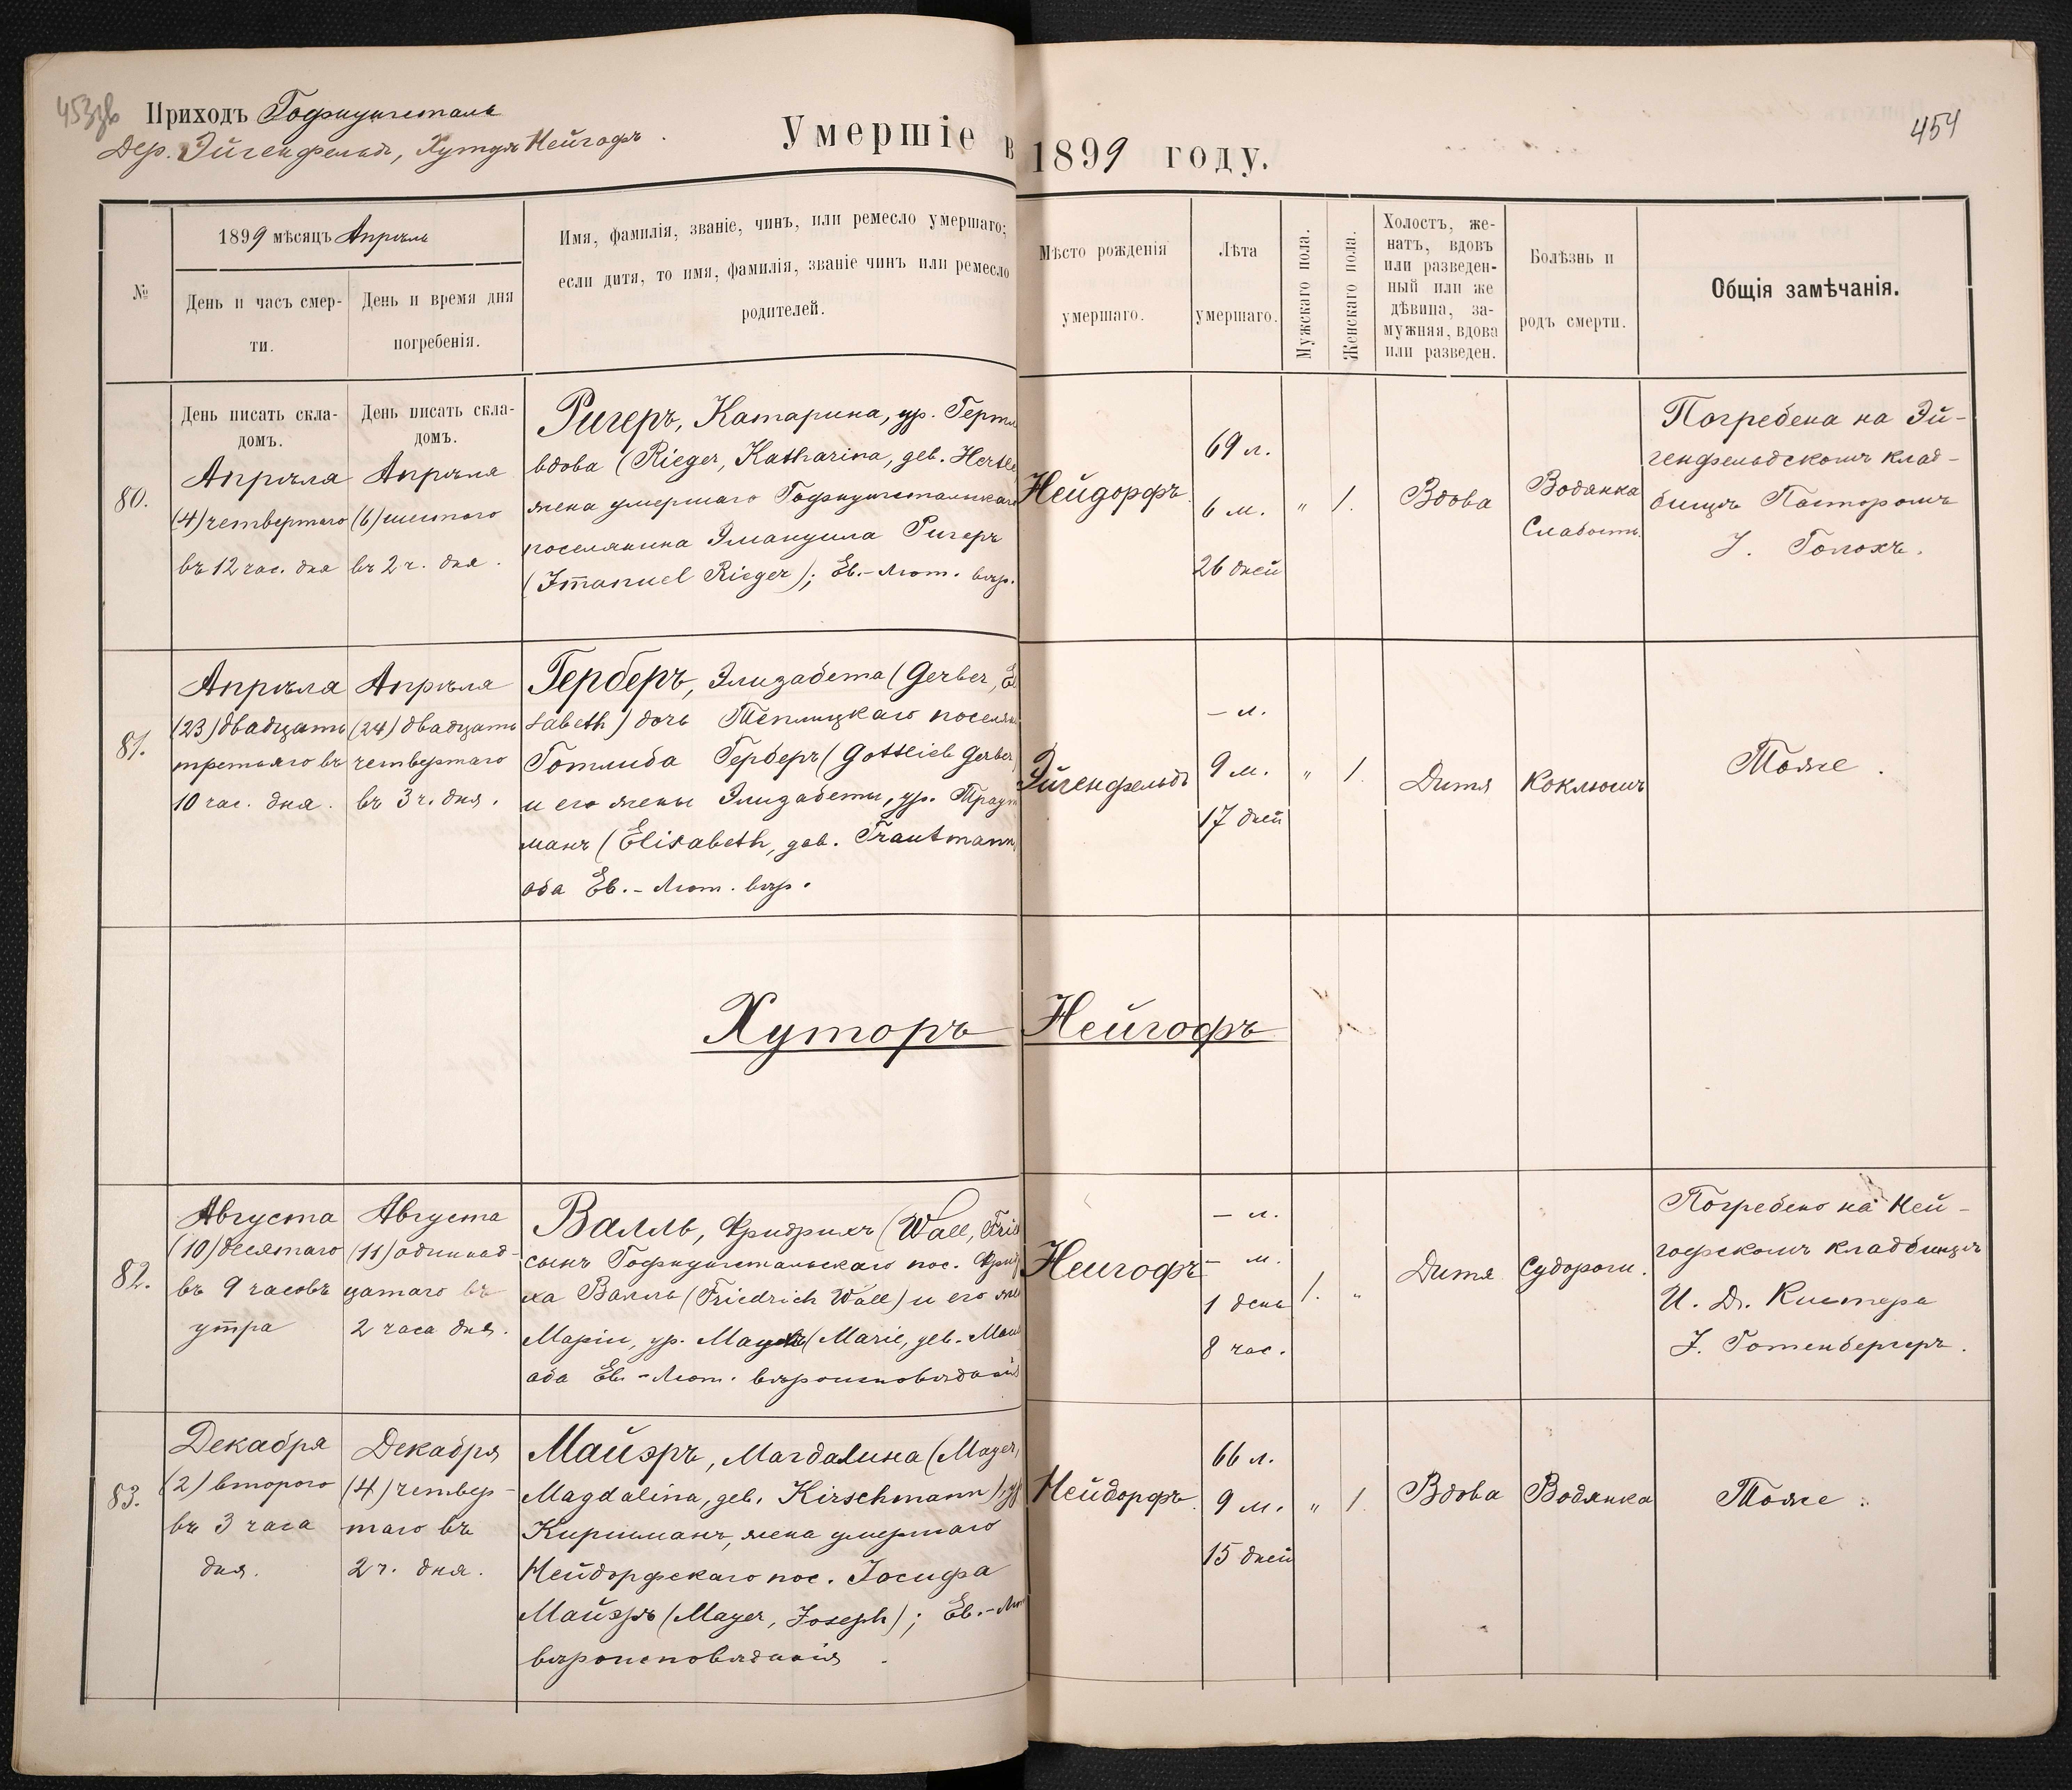 453об
Приходъ Гофнунгсталь
Дер. Эйгенфельдъ, Хуторъ Нейгофъ.
Умершіе в 1899 году.
454
№
1899 мѣсяцъ Апрѣль
День и часъ смер-
ти.
День и время дня
погребенія.
Имя, фамилія, званіе, чинъ, или ремесло умершаго;
если дитя, то имя, фамилія, званіе чинъ или ремесло
родителей.
Мѣсто рожденія
умершаго.
Лѣта
умершаго.
Мужскаго пола.
Женскаго пола.
Холостъ, же-
натъ, вдовъ
или разведен-
ный или же
дѣвица, за-
мужняя, вдова
или разведен.
Болѣзнь и
родъ смерти.
Общія замѣчанія.
День писать скла-
домъ.
День писать скла-
домъ.
80.
Апрѣля
(4) четвертаго
въ 12 час. дня
Апрѣля
(6) шестого
въ 2 ч. дня.
Ригеръ, Катарина, ур. Гертле
вдова (Rieger, Katharina, geb. Hertle
жена умершаго Гофнунгстальскаго
поселянина Эмануила Ригеръ
(Immanuel Rieger); Ев.-Лют. вѣр.
Нейдорфъ.
69 л.
6 м.
26 дней
"
1.
Вдова
Водянка
Слабость.
Погребена на Эй-
генфельдскомъ клад-
бищѣ Пасторомъ
81.
Апрѣля
(23) двадцать
третьяго въ
10 час. дня.
Апрѣля
(24) двадцать
четвертаго
въ 3 ч. дня.
Герберъ, Элизабета (Gerber, Eli
sabeth) дочь Теплицкаго поселян
Готлиба Герберъ (Gottlieb Gerber)
и его жены Элизабеты, ур. Траут
манъ (Elisabeth, geb. Trautmann)
оба Ев.-Лют. вѣр.
Эйгенфельдъ
— л.
9 м.
17 дней
"
1.
Дитя
Коклюшъ
Тоже.
Хуторъ Нейгофъ
82.
Августа
(10) десятаго
въ 9 часовъ
утра
Августа
(11) одиннад-
цатаго въ
2 часа дня.
Валль, Фридрихъ (Wall, Frie
сынъ Гофнунгстальскаго пос. Фрид
ха Валль (Friedrich Wall) и его же
Маріи, ур.
(Marie, geb.
оба Ев.-Лют. вѣроисповѣданія
Нейгофъ
— л.
— м.
1 день
8 час.
1.
"
Дитя
Судороги.
Погребено на Ней-
гофскомъ кладбищѣ
И. Д. Кистера
J. Готенбергеръ.
83.
Декабря
(2) второго
въ 3 часа
дня.
Декабря
(4) четвер-
таго въ
2 ч. дня.
Майэръ, Магдалина (Mayer,
Magdalina, geb. Kirschmann), ур
Киршманъ, жена умершаго
Нейдорфскаго пос. Іосифа
Майэръ (Mayer, Joseph); Ев.-Лют
вѣроисповѣданія.
Нейдорфъ.
66 л.
9 м.
15 дней
"
1.
Вдова
Водянка
Тоже.